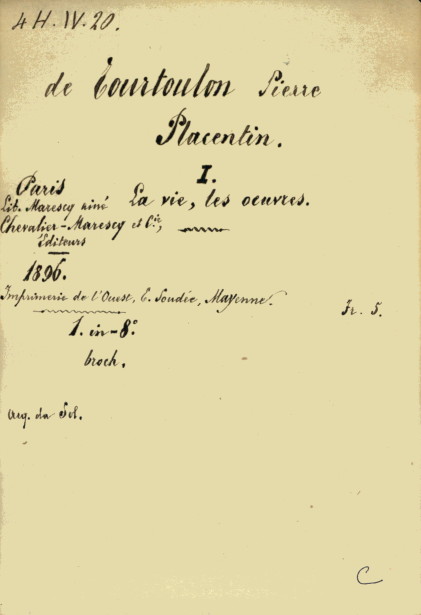 4 H. IV. 20.
de Tourtoulon Pierre
Placentin.
I.
La vie, les oeuvres.
Paris
Lit. Marescq ainé
Chevalier-Marescq et Cie,
Editeurs
1896.
Imprimerie de l'Ouest, E. Soudée, Mayenne.
Fr. 5.
1. in-8°
broch.
Acq. da Sol.
C